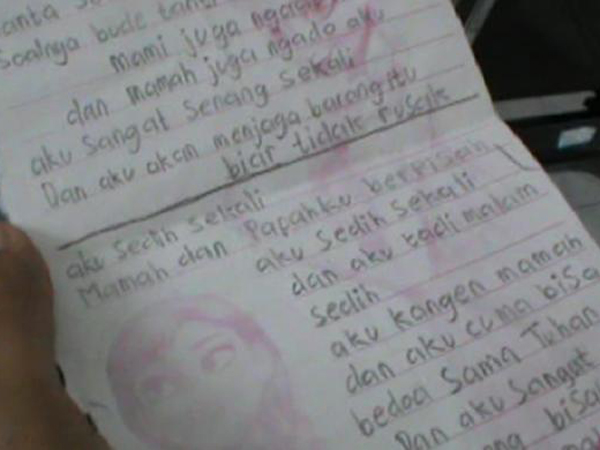 anta
soalnya bude tan
mami juga ngado
dan mamah juga ngado aku
aku sangat senang sekali
Dan aku akan menjaga barang itu
biar tidak rusak
aku sedih sekali
Mamah dan Papahku berpisah
aku sedih sekali
dan aku tadi malam
sedih
aku kangen mamah
dan aku cuma bisa
bedoa sama Tuhan
Dan aku sangat
ng bisa